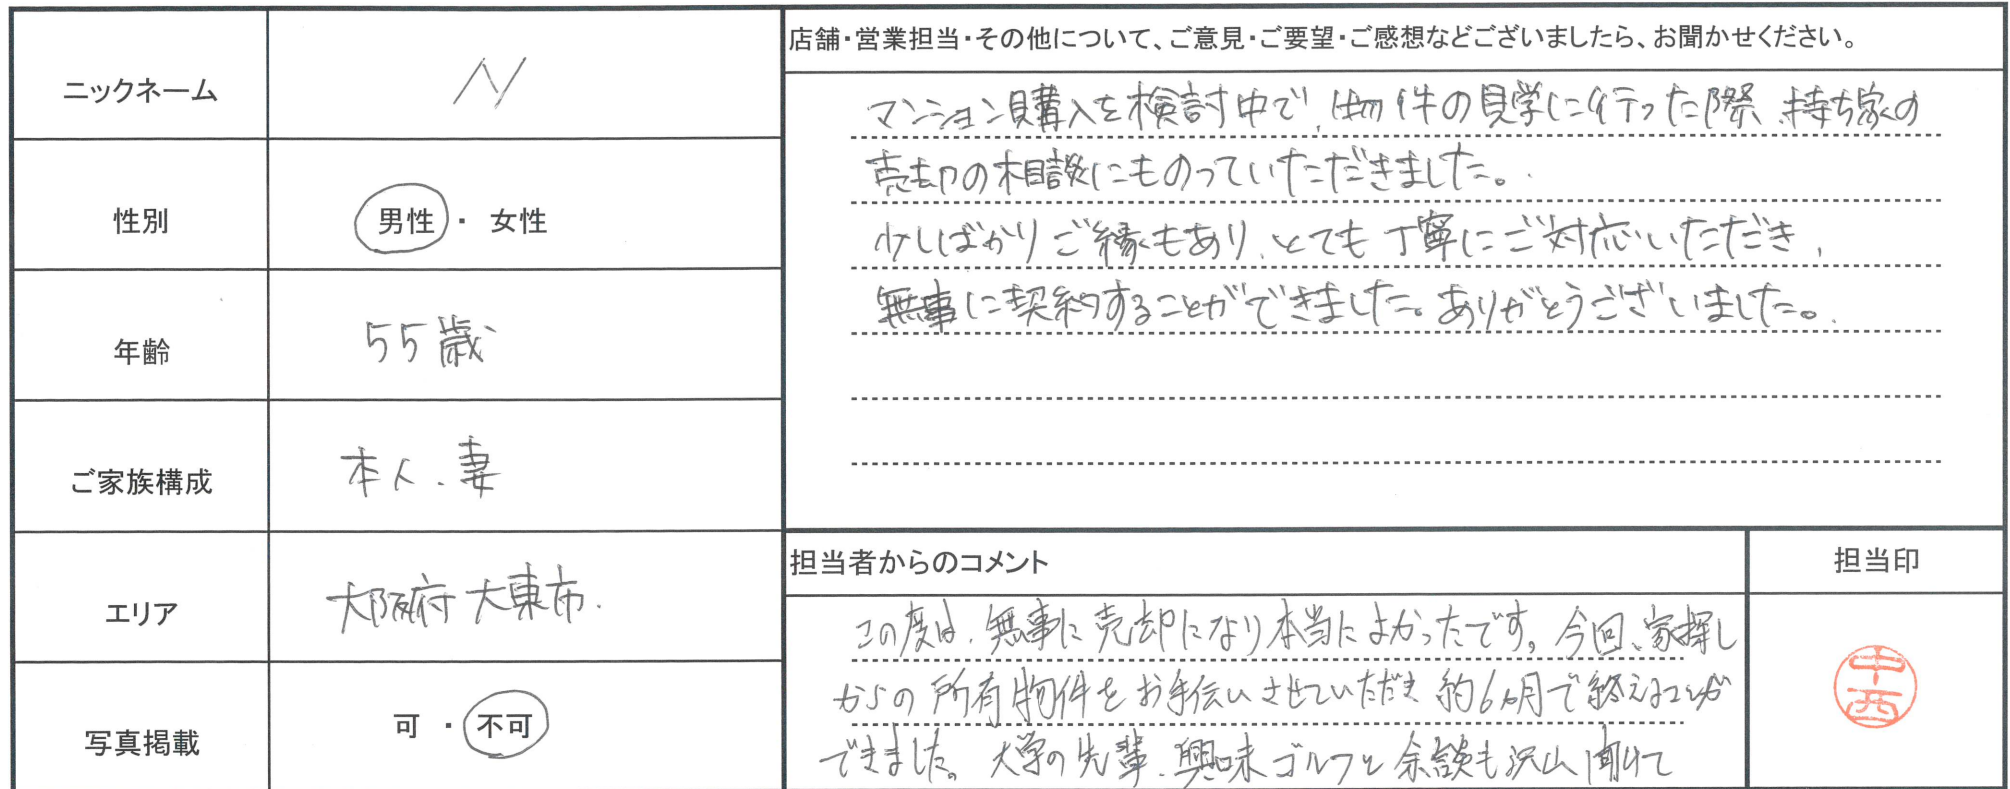 ニックネーム N
性別 男性 ・ 女性
年齢 55歳
ご家族構成 本人、妻
エリア 大阪府大東市.
写真掲載 可 ・ 不可
店舗・営業担当・その他について、ご意見・ご要望・ご感想などございましたら、お聞かせください。
マンション購入を検討中で、物件の見学に行った際、持ち家の
売却の相談にものっていただきました。
少しばかりご縁もあり、とても丁寧にご対応いただき、
無事に契約することができました。ありがとうございました。
担当者からのコメント
この度は、無事に売却になり本当によかったです。今回、家探し
からの所有物件をお手伝いさせていただき約6ヵ月で終えることが
できました。大学の先輩、興味ゴルフと余談も沢山聞けて
担当印
中西